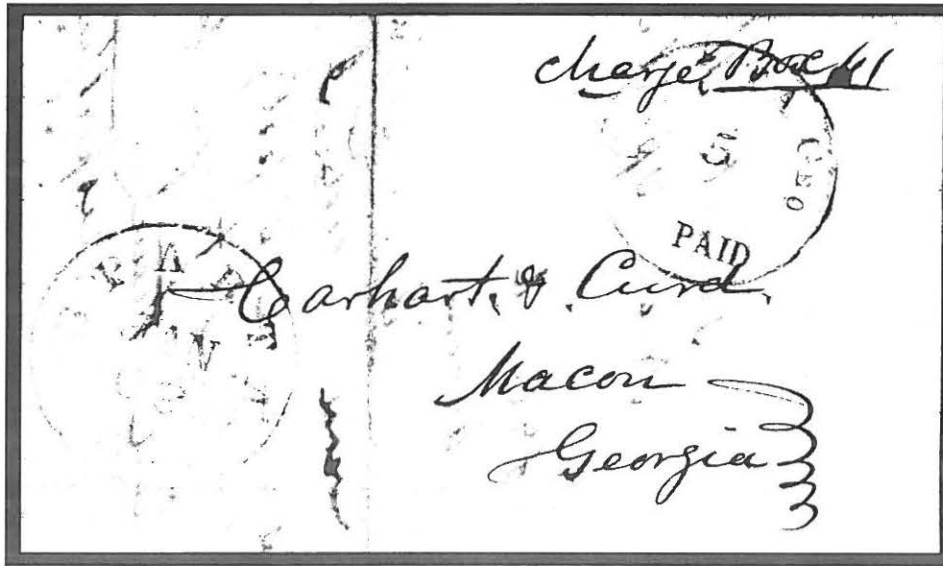 charge Box 41
5
GEO
PAID
Carhart & Curd,
Macon
Georgia